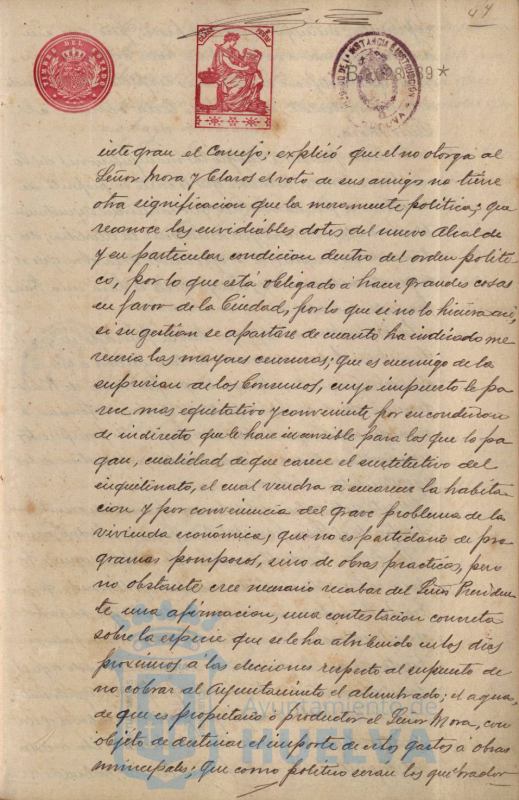 47
TIMBRE DEL ESTADO
B. 0.928.689*
HUELVA
integran el Concejo; explicó que el no otorgar al
Señor Mora y Claros el voto de sus amigos no tiene
otra significacion que la meramente política; que
reconoce las envidiables dotes del nuevo Alcalde
y su particular condicion dentro del orden politi-
co, por lo que está obligado á hacer grandes cosas
en favor de la Ciudad, por lo que si no lo hiciera asi,
si su gestion se apartare de cuanto ha indicado me-
receria las mayores censuras; que es enemigo de la
supresion de los Consumos, cuyo impuesto le pa-
rece mas equitativo y conveniente por su condicion
de indirecto que le hace insensible para los que lo pa-
gan, cualidad de que carece el sustitutivo del
inquilinato, el cual vendra á encarecer la habita-
cion y por consecuencia del grave problema de la
vivienda económica; que no es partidario de pro-
gramas pomposos, sino de obras practicas, pero
no obstante cree necesario recabar del Señor Presiden-
te una afirmacion, una contestacion concreta
sobre la especie que se le ha atribuido en los dias
proximos á las elecciones respecto al supuesto de
no cobrar al Ayuntamiento el alumbrado; el agua,
de que es propietario ó productor el Señor Mora, con
objeto de destinar el importe de estos gastos á obras
municipales; que como politico seran los quebrador
Ayuntamiento de
HUELVA